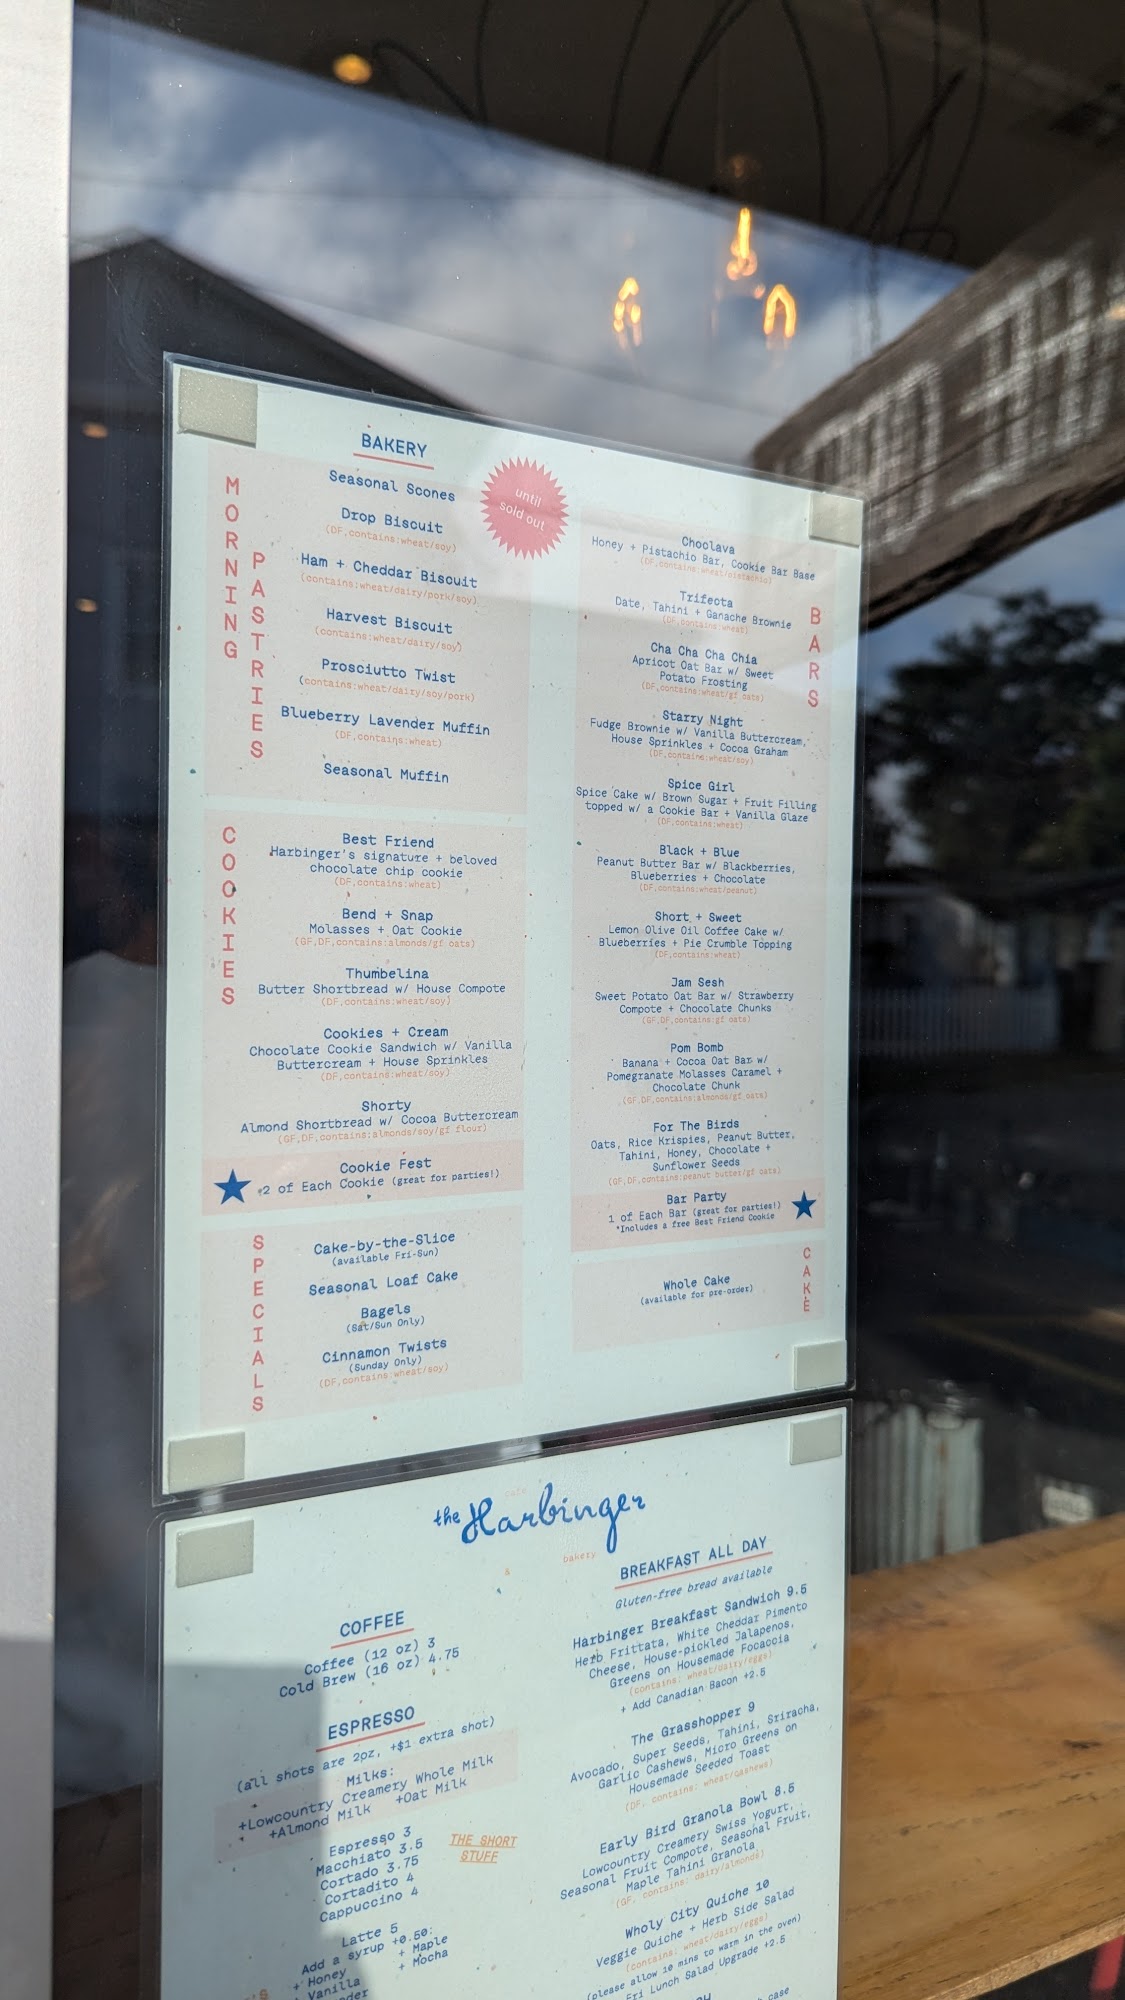 BAKERY
until
sold out
MORNING
PASTRIES
Seasonal Scones
Drop Biscuit
(DF,contains:wheat/soy)
Ham + Cheddar Biscuit
(contains:wheat/dairy/pork/soy)
Harvest Biscuit
(contains:wheat/dairy/soy)
Prosciutto Twist
(contains:wheat/dairy/soy/pork)
Blueberry Lavender Muffin
(DF,contains:wheat)
Seasonal Muffin
COOKIES
Best Friend
Harbinger's signature + beloved
chocolate chip cookie
(DF,contains:wheat)
Bend + Snap
Molasses + Oat Cookie
(GF,DF,contains:almonds/gf oats)
Thumbelina
Butter Shortbread w/ House Compote
(DF,contains:wheat/soy)
Cookies + Cream
Chocolate Cookie Sandwich w/ Vanilla
Buttercream + House Sprinkles
(DF,contains:wheat/soy)
Shorty
Almond Shortbread w/ Cocoa Buttercream
(GF,DF,contains:almonds/soy/gf flour)
Cookie Fest
2 of Each Cookie (great for parties!)
SPECIALS
Cake-by-the-Slice
(available Fri-Sun)
Seasonal Loaf Cake
Bagels
(Sat/Sun Only)
Cinnamon Twists
(Sunday Only)
(DF,contains:wheat/soy)
BARS
Choclava
Honey + Pistachio Bar, Cookie Bar Base
(DF,contains:wheat/pistachio)
Trifecta
Date, Tahini + Ganache Brownie
(DF,contains:wheat)
Cha Cha Cha Chia
Apricot Oat Bar w/ Sweet
Potato Frosting
(DF,contains:wheat/gf oats)
Starry Night
Fudge Brownie w/ Vanilla Buttercream,
House Sprinkles + Cocoa Graham
(DF,contains:wheat/soy)
Spice Girl
Spice Cake w/ Brown Sugar + Fruit Filling
topped w/ a Cookie Bar + Vanilla Glaze
(DF,contains:wheat)
Black + Blue
Peanut Butter Bar w/ Blackberries,
Blueberries + Chocolate
(DF,contains:wheat/peanut)
Short + Sweet
Lemon Olive Oil Coffee Cake w/
Blueberries + Pie Crumble Topping
(DF,contains:wheat)
Jam Sesh
Sweet Potato Oat Bar w/ Strawberry
Compote + Chocolate Chunks
(GF,DF,contains:gf oats)
Pom Bomb
Banana + Cocoa Oat Bar w/
Pomegranate Molasses Caramel +
Chocolate Chunk
(GF,DF,contains:almonds/gf oats)
For The Birds
Oats, Rice Krispies, Peanut Butter,
Tahini, Honey, Chocolate +
Sunflower Seeds
(GF,DF,contains:peanut butter/gf oats)
Bar Party
1 of Each Bar (great for parties!)
*Includes a free Best Friend Cookie
CAKE
Whole Cake
(available for pre-order)
cafe
the Harbinger
&
bakery
COFFEE
Coffee (12 oz) 3
Cold Brew (16 oz) 4.75
ESPRESSO
(all shots are 2oz, +$1 extra shot)
Milks:
+Lowcountry Creamery Whole Milk
+Almond Milk +Oat Milk
Espresso 3
Macchiato 3.5
Cortado 3.75
Cortadito 4
Cappuccino 4
THE SHORT
STUFF
Latte 5
Add a syrup +0.50:
+ Honey
+ Maple
Vanilla
+ Mocha
BREAKFAST ALL DAY
Gluten-free bread available
Harbinger Breakfast Sandwich 9.5
Herb Frittata, White Cheddar Pimento
Cheese, House-pickled Jalapenos,
Greens on Housemade Focaccia
(contains: wheat/dairy/eggs)
+ Add Canadian Bacon +2.5
The Grasshopper 9
Avocado, Super Seeds, Tahini, Sriracha,
Garlic Cashews, Micro Greens on
Housemade Seeded Toast
(DF, contains: wheat/cashews)
Early Bird Granola Bowl 8.5
Lowcountry Creamery Swiss Yogurt,
Seasonal Fruit Compote, Seasonal Fruit,
Maple Tahini Granola
(GF, contains: dairy/almonds)
Wholy City Quiche 10
Veggie Quiche + Herb Side Salad
(contains: wheat/dairy/eggs)
(please allow 10 mins to warm in the oven)
Fri Lunch Salad Upgrade +2.5
case